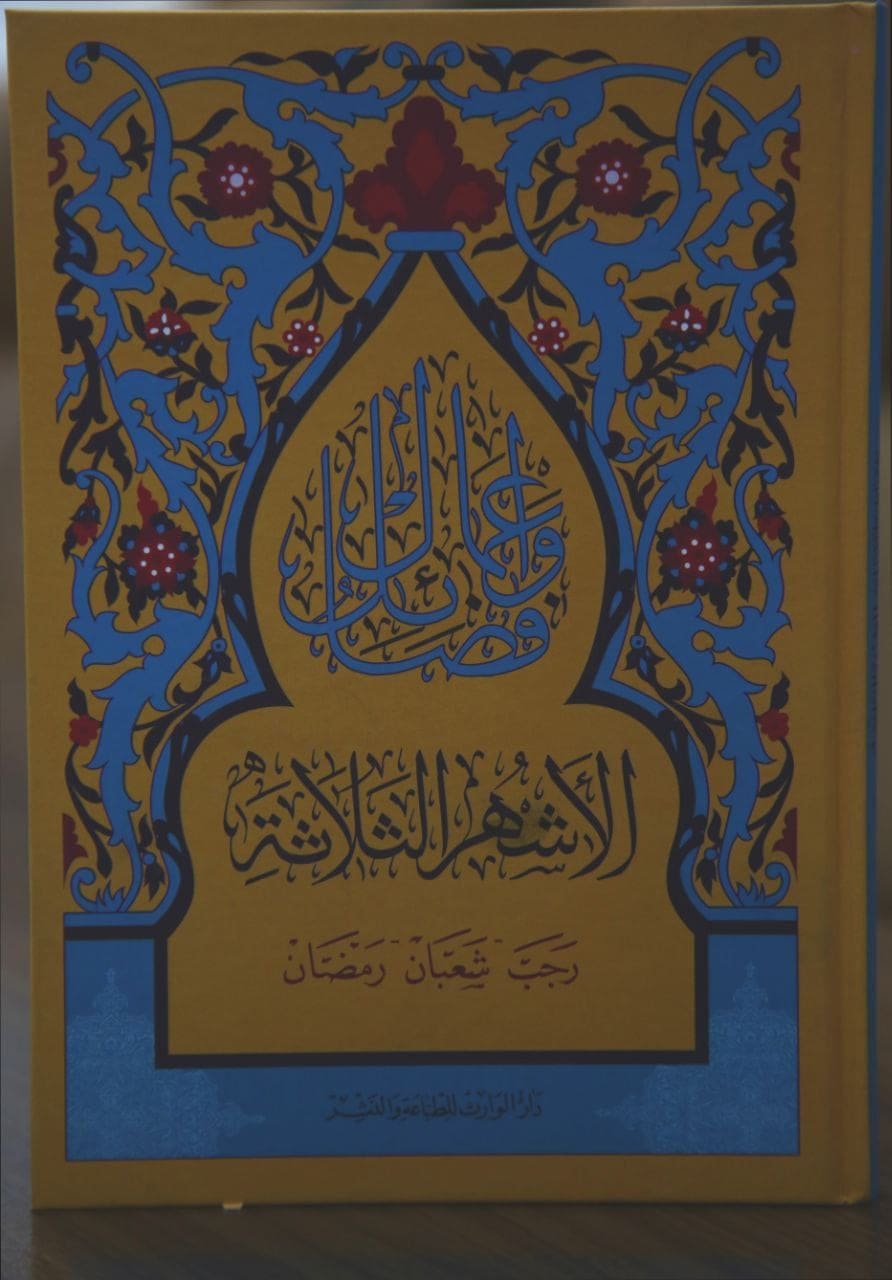 فضائل وأعمال
الأشهر الثلاثة
رجب - شعبان - رمضان
دار الوارث للطباعة والنشر